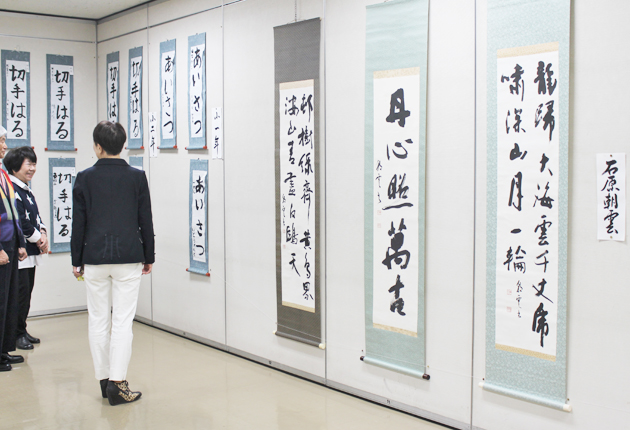 切手はる
切手はる
切手はる
切手はる
切手はる
小二年
あいさつ
あいさつ
あいさつ
小一年
邨樹綠齊黄鳥界
海山青盡白鷗天
丹心照萬古
龍歸大海雲千丈虎
嘯深山月一輪
石原朝雲